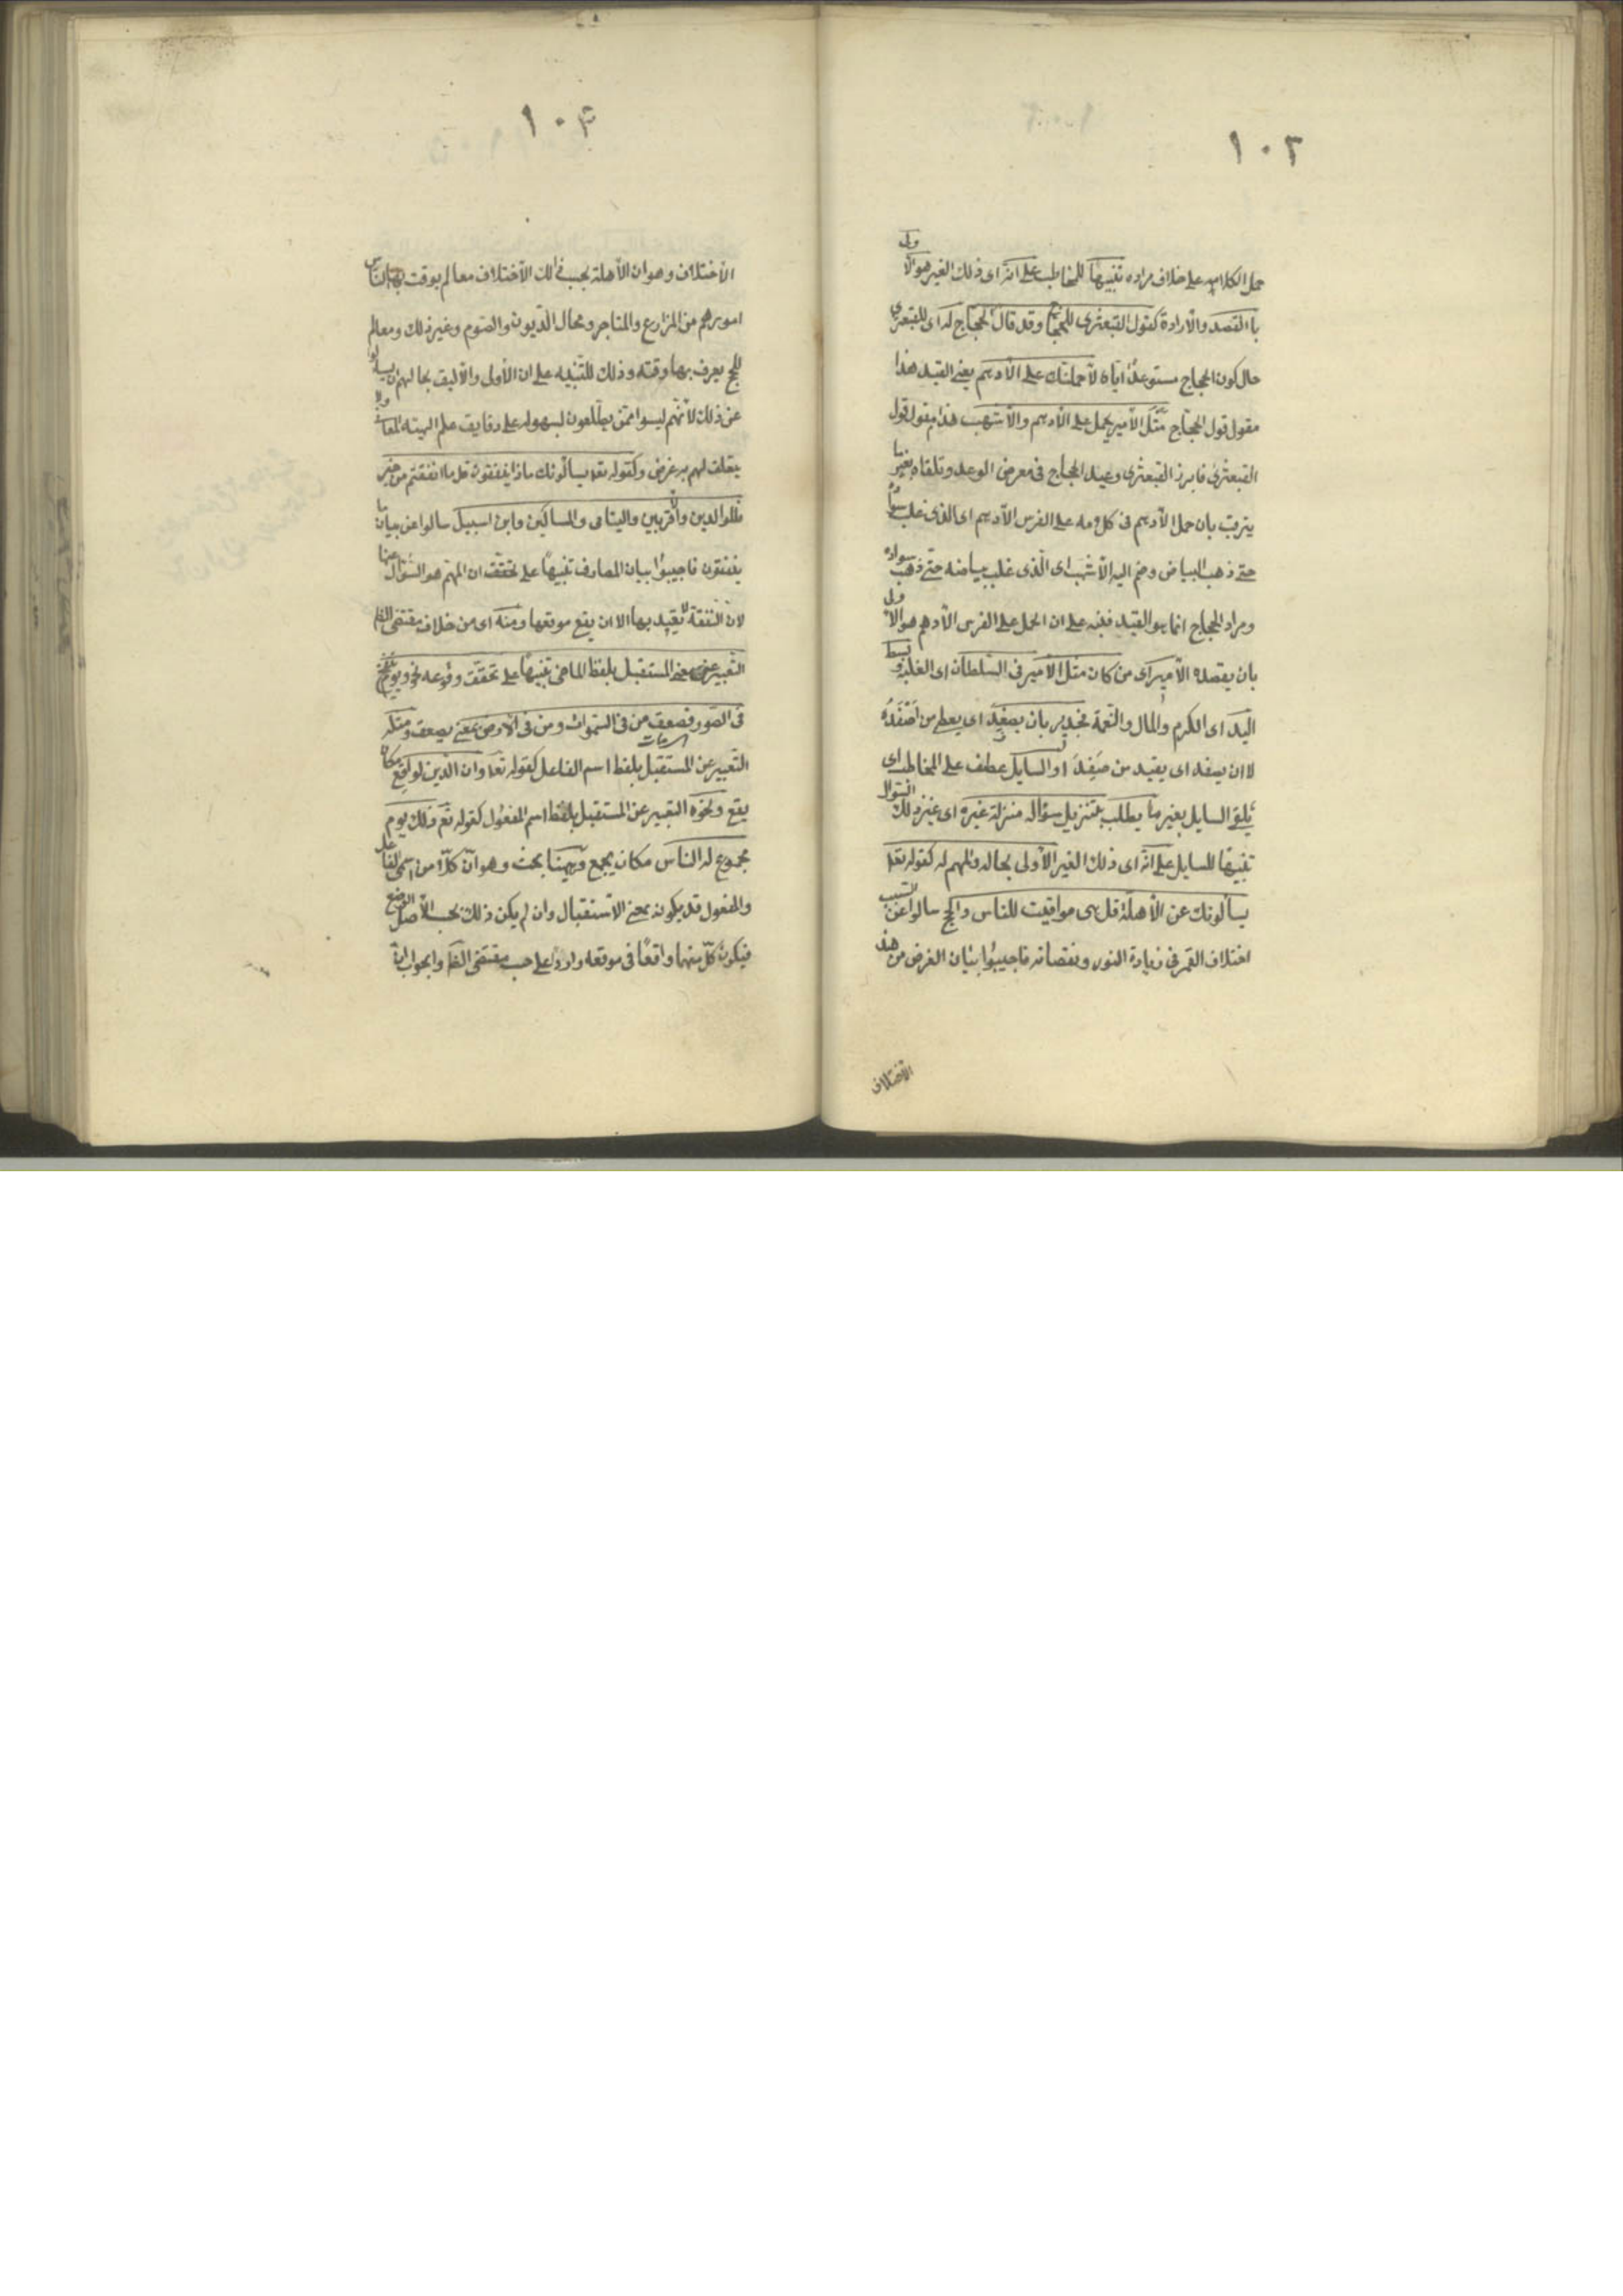 ١٠٢
حمل الكلام على خلاف مراده تنبيها للمخاطب على انه اى ذلك الغير هو الأولى
باالقصد والارادة كقول القبعثرى للحجاج وقد قال الحجاج له اى للقبعثرى
حال كون الحجاج مستوعدا اياه لأحملنك على الأدهم يعنى القيد هذا
مقول قول الحجاج مثل الأمير يحمل على الأدهم والأشهب هذا مقول قول
القبعثرى فابرز القبعثرى وعيد الحجاج فى معرض الوعد وتلقاه بغير ما
يترقب بان حمل الأدهم فى كلامه على الفرس الأدهم اى الذى غلب سواده
حتى ذهب البياض وضم اليه الأشهب اى الذى غلب بياضه حتى ذهب سواده
ومراد الحجاج انما هو القيد فنبه على ان الحمل على الفرس الأدهم هو الأولى
بان يقصده الأمير اى من كان مثل الأمير فى السلطان اى الغلبة وبسط
اليد اى الكرم والمال والنعمة فجدير بان يصفد اى يعطى من اَصْفَدَهُ
لا ان يصفد اى يقيد من صَفَدَ او السايل عطف على المخاطب اى
تلقى السايل بغير ما يطلب بتنزيل سؤاله منزلة غيره اى غير ذلك السؤال
تنبيها للسايل على انه اى ذلك الغير الأولى بحاله والمهم له كقوله تعا
يسألونك عن الأهلة قل هى مواقيت للناس والحج سالوا عن السبب
اختلاف القمر فى زيادة النور ونقصانه فاجيبوا ببيان الغرض من هذا
الاختلاف
١٠٣
الاختلاف وهو ان الأهلة بحسب ذالك الأختلاف معالم يوقت بها الناس
امورهم من المزارع والمتاجر ومحال الديون والصوم وغير ذلك ومعالم
للحج يعرف بها وقته وذلك للتنبيه على ان الأولى والأليق بحالهم ان يسألوا
عن ذلك لأنهم ليسوا ممن يطلعون بسهولة على دقايق علم الهيئة ولا
يتعلق لهم به غرض وكقوله تعا يسألونك ماذا ينفقون قل ما انفقتم من خير
فللوالدين والأقربين واليتامى والمساكين وابن السبيل سالوا عن بيان ما
ينفقون فاجيبوا ببيان المصارف تنبيها على تحقق ان المهم هو السؤال عنها
لان النفقة لا يعتد بها الا ان يقع موقعها ومنه اى من خلاف مقتضى الظ
التعبير عن المستقبل بلفظ الماضى تنبيها على تحقق وقوعه نحو ويوم ينفخ
فى الصور فصعق من فى السموات ومن فى الأرض بمعنى يصعق ومثله
التعبير عن المستقبل بلفظ اسم الفاعل كقوله تعا وان الدين لواقع مكان
يقع ونحوه التعبير عن المستقبل بلفظ اسم المفعول كقوله تع ذلك يوم
مجموع له الناس مكان يجمع وههنا بحث وهو ان كلا من اسمى الفاعل
والمفعول قد يكون بمعنى الاستقبال وان لم يكن ذلك بحسب الأصل الوضع
فيكون كل منهما واقعا فى موقعه واردا على حسب مقتضى الظ والجواب ان